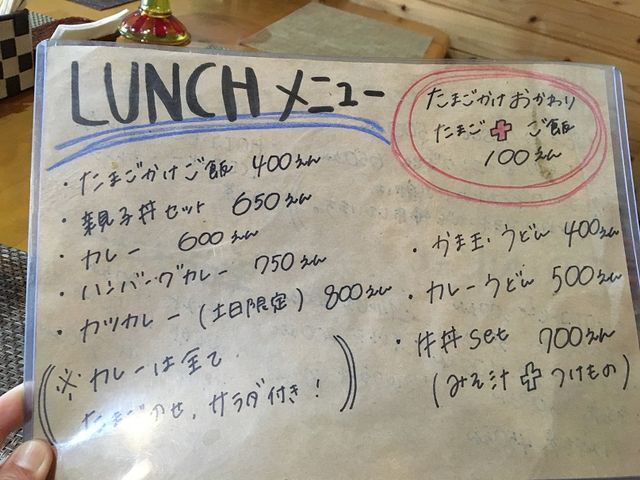 LUNCH メニュー
たまごかけおかわり
たまご＋ご飯
100えん
・たまごかけご飯 400えん
・親子丼セット 650えん
・カレー 600えん
・ハンバーグカレー 750えん
・カツカレー（土日限定）800えん
（※カレーは全て
たまごのせ、サラダ付き！）
・かま玉うどん 400えん
・カレーうどん 500えん
・牛丼set 700えん
（みそ汁＋つけもの）